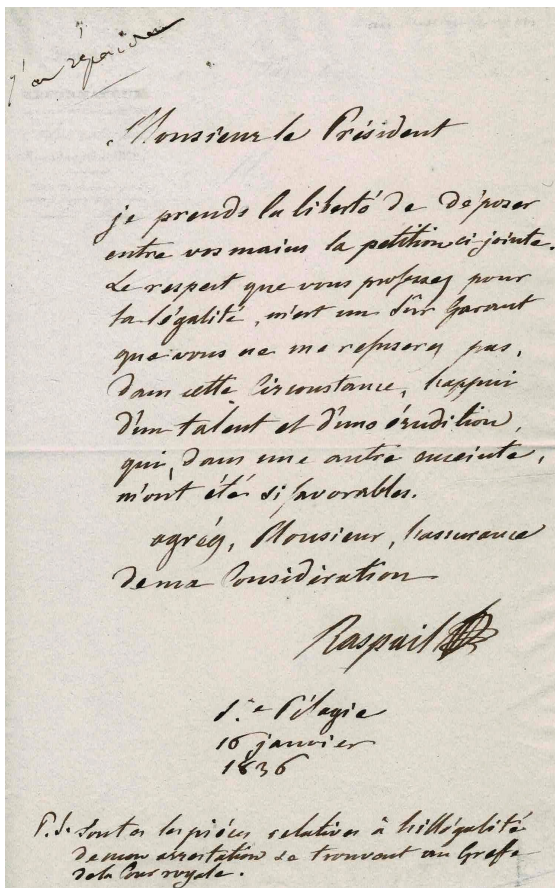 j'ai répondu
Monsieur le Président
je prends la liberté de déposer
entre vos mains la petition ci jointe.
Le respect que vous professez pour
la légalité, m'est un sûr garant
que vous ne me refuserez pas,
dans cette circonstance, l'appui
d'un talent et d'une érudition,
qui, dans une autre enceinte,
m'ont été si favorables.
agréez, Monsieur, l'assurance
de ma Considération
Raspail
Ste Pélagie
16 janvier
1836
P.S. toutes les pièces relatives à l'illégalité
de mon arrestation se trouvent au Greffe
de la Cour royale.